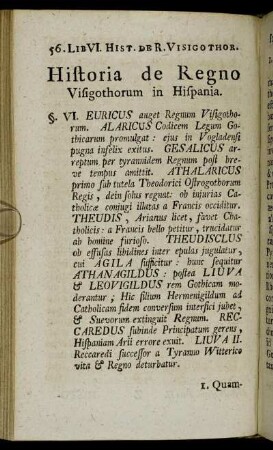 56. LIBVI. HIST. DE R. VISIGOTHOR.
Hiſtoria de Regno
Viſigothorum in Hiſpania.
§. VI. EURICUS auget Regnum Viſigotho-
rum. ALARICUS Codicem Legum Go-
thicarum promulgat: ejus in Vogladenſi
pugna infelix exitus. GESALICUS ar-
reptum per tyrannidem Regnum poſt bre-
ve tempus amittit. ATHALARICUS
primo ſub tutela Theodorici Oſtrogothorum
Regis, dein ſolus regnat: ob injurias Ca-
tholicæ conjugi illatas a Francis occiditur.
THEUDIS, Arianus licet, favet Cha-
tholicis: a Francis bello petitur, trucidatur
ab homine furioſo. THEUDISCLUS
ob effuſas libidines inter epulas jugulatur,
cui AGILA ſufficitur: hunc ſequitur
ATHANAGILDUS: poſtea LIUVA
& LEOVIGILDUS rem Gothicam mo-
derantur; Hic filium Hermenigildum ad
Catholicam fidem converſum interfici jubet,
& Suevorum extinguit Regnum. REC-
CAREDUS ſubinde Principatum gerens,
Hiſpaniam Arii errore exuit. LIUVA II.
Reccaredi ſucceſſor a Tyranno Witterico
vita & Regno deturbatur.
1. Quam-